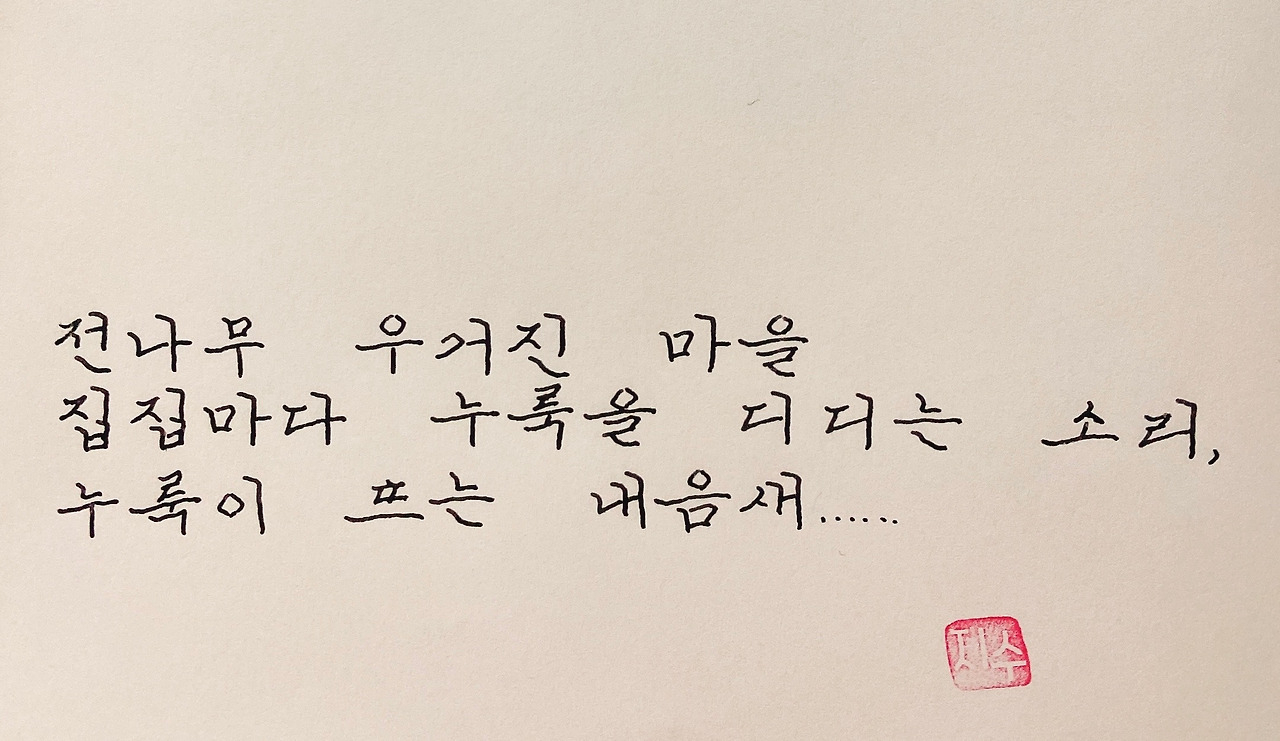 전나무 우거진 마을
집집마다 누룩을 디디는 소리,
누룩이 뜨는 내음새......